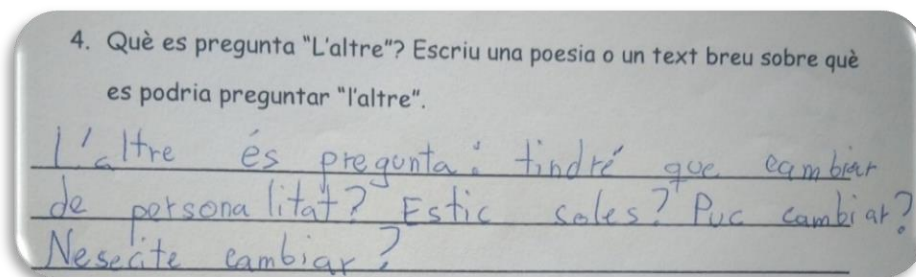 4. Què es pregunta "L'altre"? Escriu una poesia o un text breu sobre què
es podria preguntar "l'altre".
L'altre és pregunta: tindré que cambiar
de personalitat? Estic soles? Puc cambiar?
Nesecite cambiar?